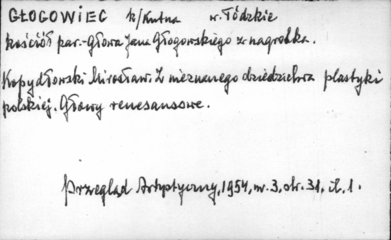 GŁOGOWIEC k/Kutna w. Łódzkie
Kościół par.-Głowa Jana Głogowskiego z nagrobka.
Kopydłowski Mirosław. Z nieznanego dziedzictwa plastyki
polskiej. Głowy renesansowe.
Przegląd Artystyczny, 1954, nr. 3, str. 31, il. 1.